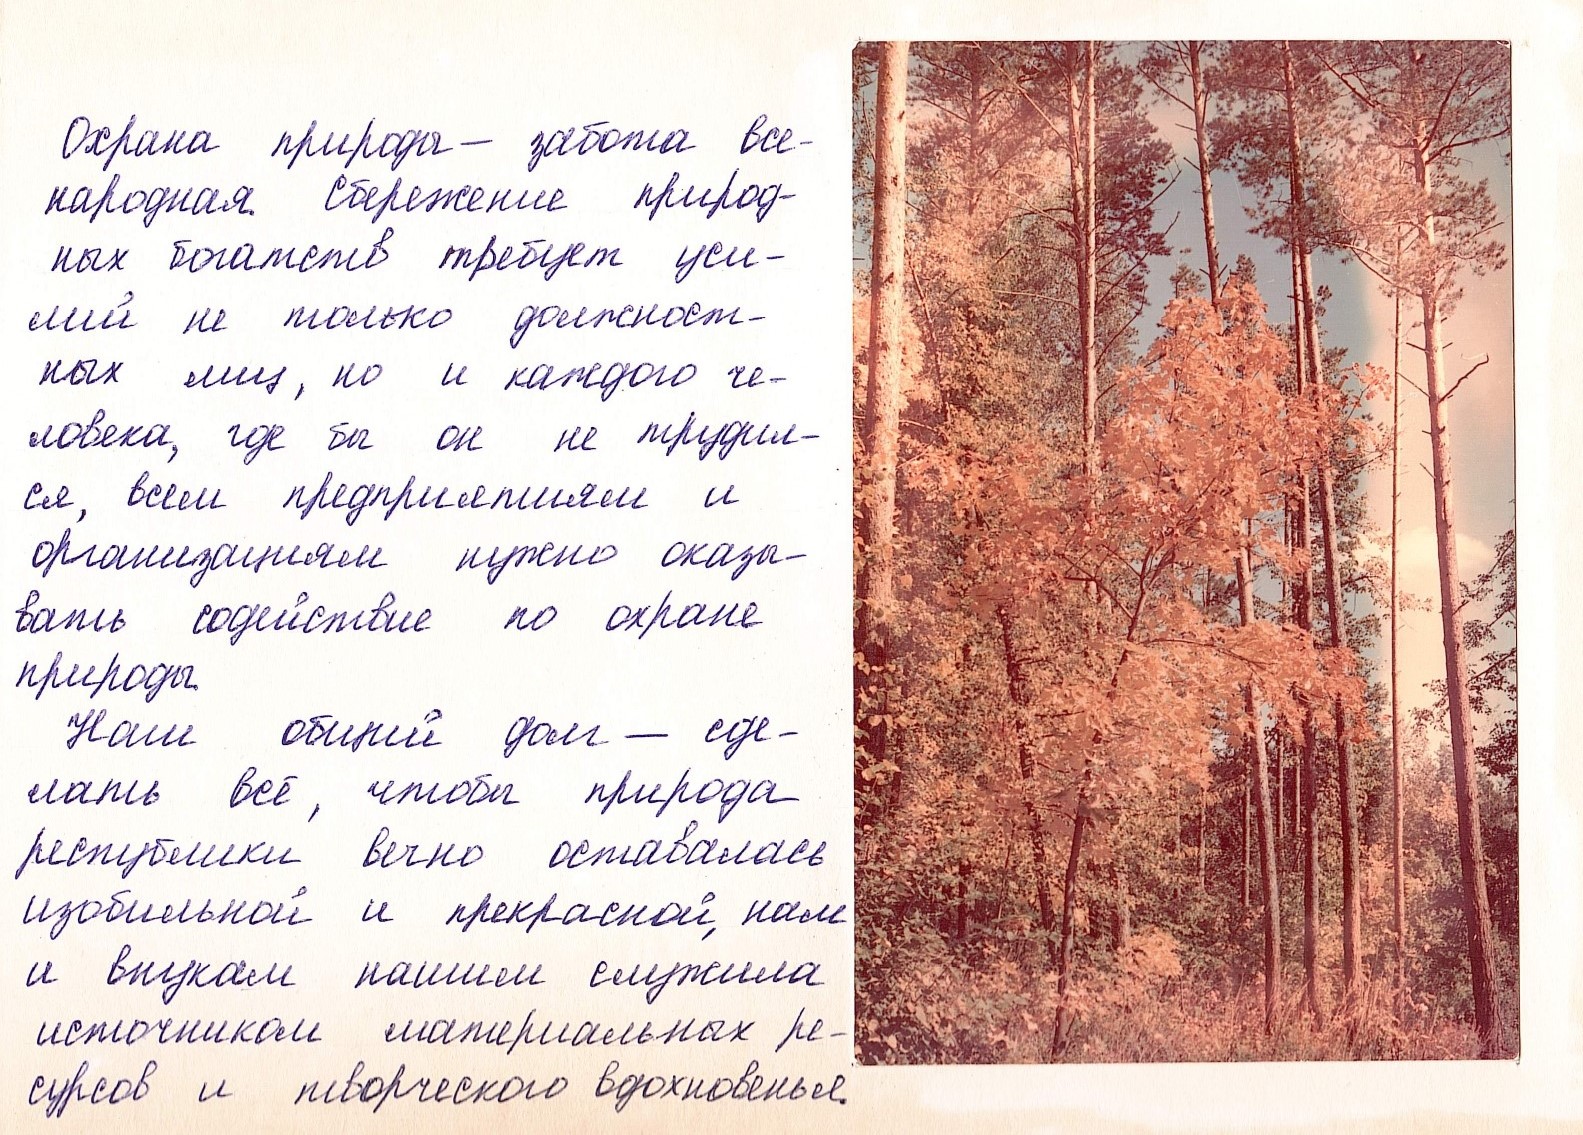 Охрана природы — забота все-
народная. Сбережение природ-
ных богатств требует уси-
лий не только должност-
ных лиц, но и каждого че-
ловека, где бы он не трудил-
ся, всем предприятиям и
организациям нужно оказы-
вать содействие по охране
природы.
Наш общий долг — сде-
лать всё, чтобы природа
республики вечно оставалась
изобильной и прекрасной, нам
и внукам нашим служила
источником материальных ре-
сурсов и творческого вдохновенья.